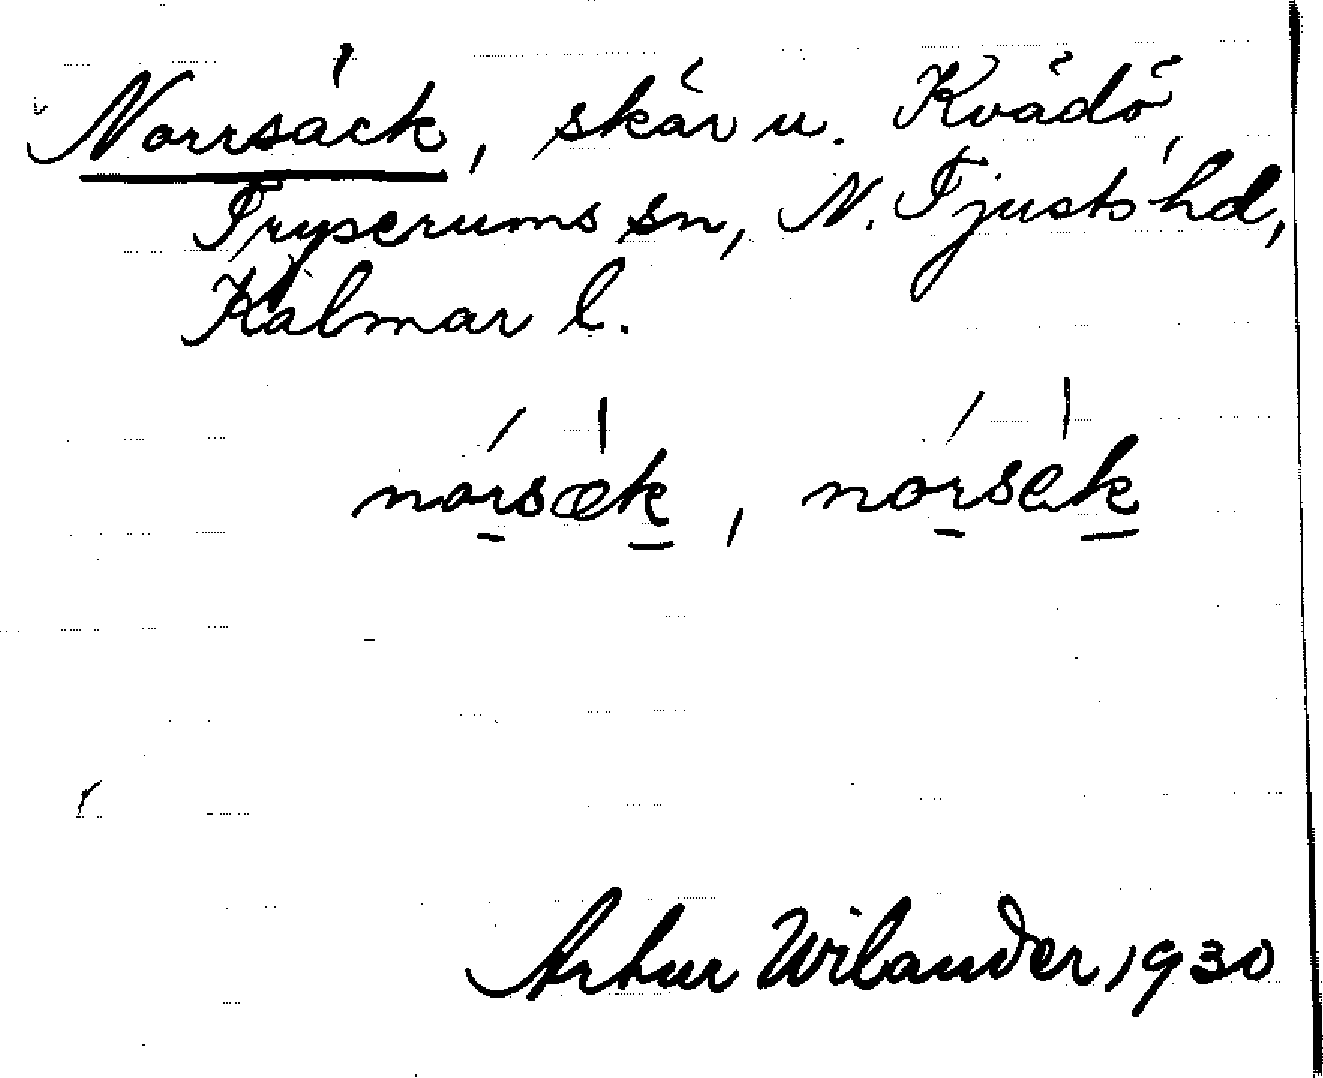 Norrsäck, skär u. Kvädö
Tryserums sn, N. Tjusts hd,
Kalmar l.
norsæk, norsek
Artur Wilander, 1930